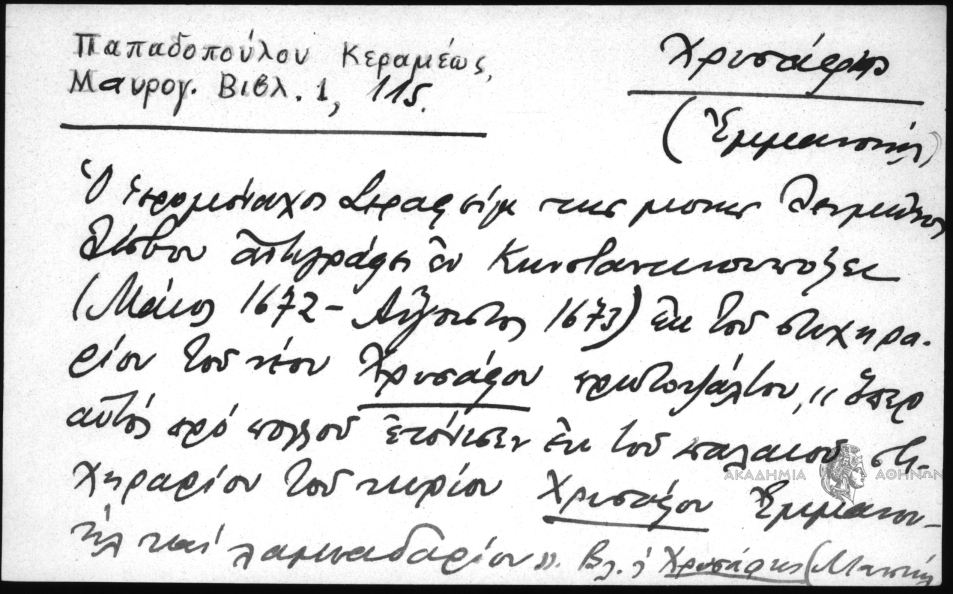 Παπαδοπούλου Κεραμέως,
Μαυρογ. Βιβλ. 1, 115.
Χρυσάφης
(Ἐμμανουήλ)
Ὁ ἱερομόναχος Σεραφεὶμ τῆς μονῆς Λειμῶνος
Λέσβου ἀντιγράφει ἐν Κωνσταντινουπόλει
(Μάιος 1672 - Αὔγουστος 1673) ἐκ τοῦ στιχηρα-
ρίου τοῦ νέου Χρυσάφου πρωτοψάλτου, "ὅπερ
αὐτὸς πρὸ πολλοῦ ἐτόνισεν ἐκ τοῦ παλαιοῦ στι-
χηραρίου τοῦ κυρίου Χρυσάφου Ἐμμανου-
ὴλ καὶ λαμπαδαρίου". Βλ. ἐ Χρυσάφης (Μανουὴλ
ΑΚΑΔΗΜΙΑ ΑΘΗΝΩΝ